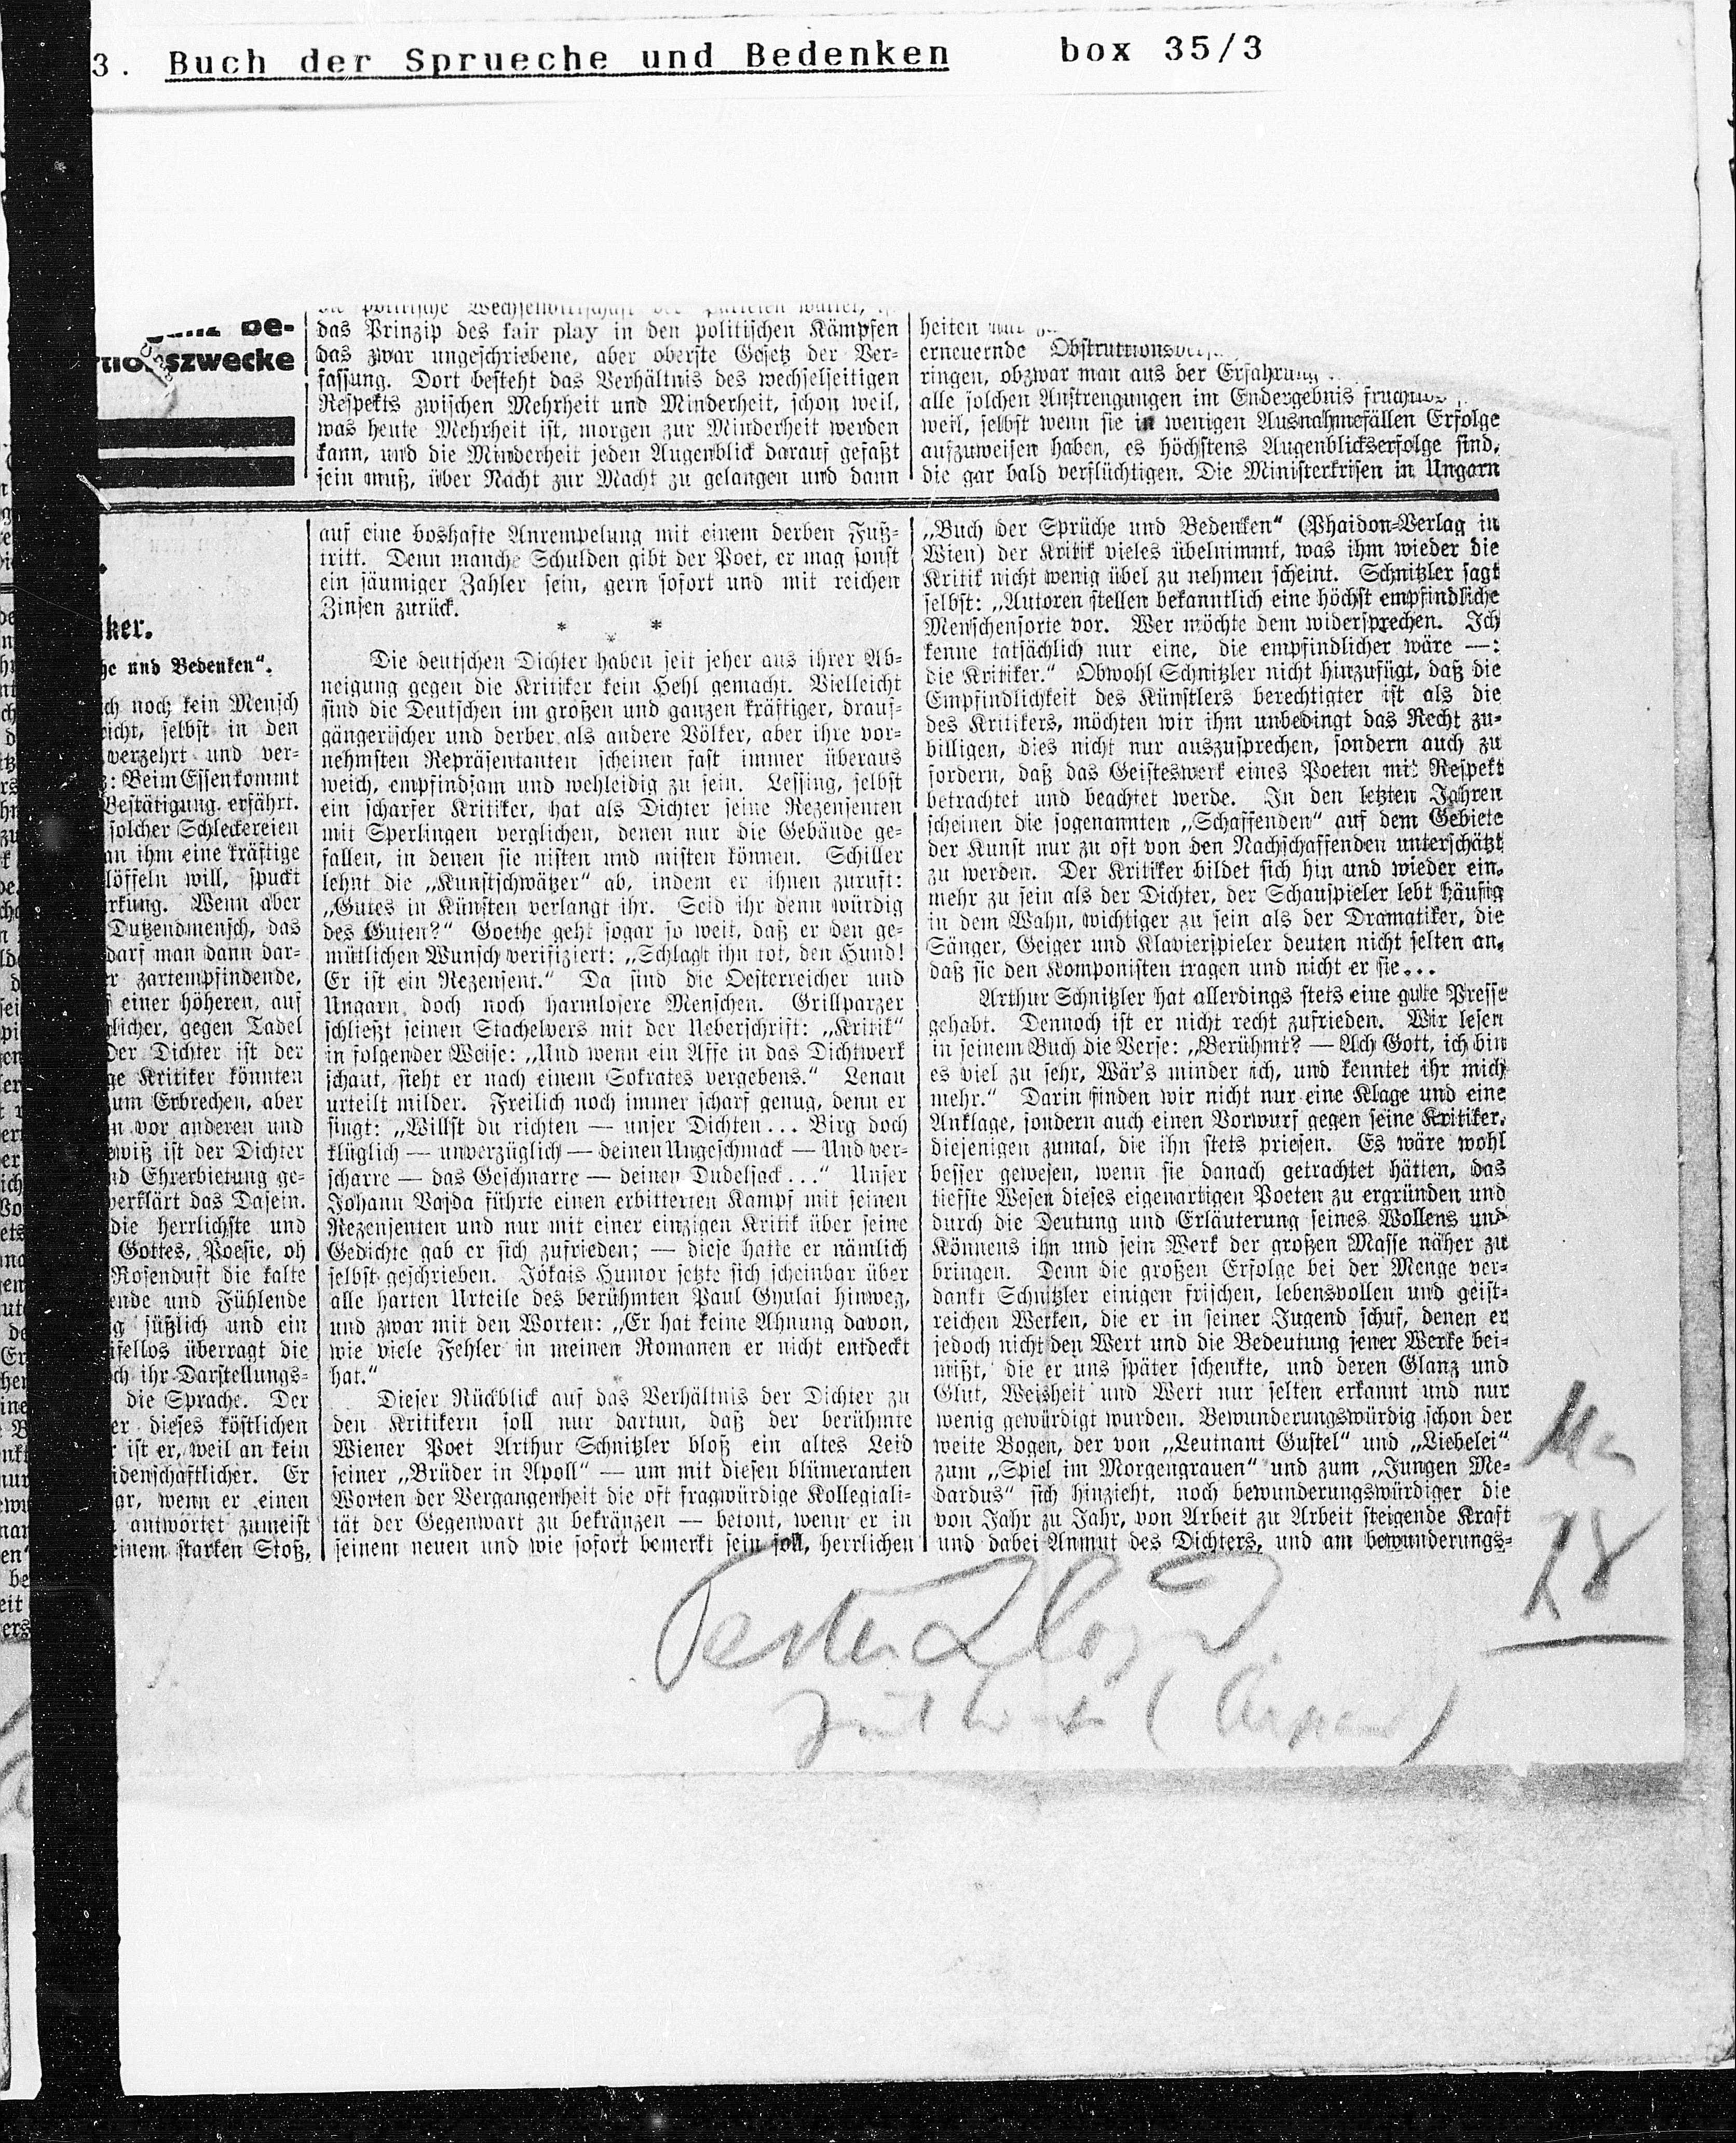 3. Buch der Sprueche und Bedenken box 35/3
be-
szwecke
das Prinzip des fair play in den politischen Kämpfen
das zwar ungeschriebene, aber oberste Gesetz der Ver-
fassung. Dort besteht das Verhältnis des wechselseitigen
Respekts zwischen Mehrheit und Minderheit, schon weil,
was heute Mehrheit ist, morgen zur Minderheit werden
kann, und die Minderheit jeden Augenblick darauf gefaßt
sein muß, über Nacht zur Macht zu gelangen und dann
heiten
erneuernde
ringen, obzwar man aus der Erfahrung
alle solchen Anstrengungen im Endergebnis
weil, selbst wenn sie in wenigen Ausnahmefällen Erfolge
aufzuweisen haben, es höchstens Augenblickserfolge sind,
die gar bald verflüchtigen. Die Ministerkrisen in Ungarn
ker.
he und Bedenken".
ch noch kein Mensch
richt, selbst in den
verzehrt und ver-
: Beim Essen kommt
Bestätigung erfährt.
solcher Schleckereien
an ihm eine kräftige
löffeln will, spuckt
rkung. Wenn aber
Dutzendmensch, das
darf man dann dar-
r zartempfindende,
einer höheren, auf
licher, gegen Tadel
Der Dichter ist der
ge Kritiker könnten
um Erbrechen, aber
n vor anderen und
wiß ist der Dichter
nd Ehrerbietung ge-
verklärt das Dasein.
die herrlichste und
Gottes, Poesie, oh
Rosenduft die kalte
ende und Fühlende
g süßlich und ein
ifellos überragt die
ch ihr Darstellungs-
die Sprache. Der
er dieses köstlichen
r ist er, weil an kein
idenschaftlicher. Er
gar, wenn er einen
antwortet zumeist
einem starken Stoß,
auf eine boshafte Anrempelung mit einem derben Fuß-
tritt. Denn manche Schulden gibt der Poet, er mag sonst
ein säumiger Zahler sein, gern sofort und mit reichen
Zinsen zurück.
* * *
Die deutschen Dichter haben seit jeher aus ihrer Ab-
neigung gegen die Kritiker kein Hehl gemacht. Vielleicht
sind die Deutschen im großen und ganzen kräftiger, drauf-
gängerischer und derber als andere Völker, aber ihre vor-
nehmsten Repräsentanten scheinen fast immer überaus
weich, empfindsam und wehleidig zu sein. Lessing, selbst
ein scharfer Kritiker, hat als Dichter seine Rezensenten
mit Sperlingen verglichen, denen nur die Gebäude ge-
fallen, in denen sie nisten und misten können. Schiller
lehnt die „Kunstschwätzer" ab, indem er ihnen zuruft:
„Gutes in Künsten verlangt ihr. Seid ihr denn würdig
des Guten?" Goethe geht sogar so weit, daß er den ge-
mütlichen Wunsch versifiziert: „Schlagt ihn tot, den Hund!
Er ist ein Rezensent." Da sind die Oesterreicher und
Ungarn doch noch harmlosere Menschen. Grillparzer
schließt seinen Stachelvers mit der Ueberschrift: „Kritik"
in folgender Weise: „Und wenn ein Affe in das Dichtwerk
schaut, sieht er nach einem Sokrates vergebens." Lenau
urteilt milder. Freilich noch immer scharf genug, denn er
singt: „Willst du richten — unser Dichten... Birg doch
klüglich — unverzüglich — deinen Ungeschmack — Und ver-
scharre — das Geschnarre — deinen Dudelsack..." Unser
Johann Vajda führte einen erbitterten Kampf mit seinen
Rezensenten und nur mit einer einzigen Kritik über seine
Gedichte gab er sich zufrieden; — diese hatte er nämlich
selbst geschrieben. Jókais Humor setzte sich scheinbar über
alle harten Urteile des berühmten Paul Gyulai hinweg,
und zwar mit den Worten: „Er hat keine Ahnung davon,
wie viele Fehler in meinen Romanen er nicht entdeckt
hat."
Dieser Rückblick auf das Verhältnis der Dichter zu
den Kritikern soll nur dartun, daß der berühmte
Wiener Poet Arthur Schnitzler bloß ein altes Leid
seiner „Brüder in Apoll" — um mit diesen blümeranten
Worten der Vergangenheit die oft fragwürdige Kollegiali-
tät der Gegenwart zu bekränzen — betont, wenn er in
seinem neuen und wie sofort bemerkt sein soll, herrlichen
„Buch der Sprüche und Bedenken" (Phaidon-Verlag in
Wien) der Kritik vieles übelnimmt, was ihm wieder die
Kritik nicht wenig übel zu nehmen scheint. Schnitzler sagt
selbst: „Autoren stellen bekanntlich eine höchst empfindliche
Menschensorte vor. Wer möchte dem widersprechen. Ich
kenne tatsächlich nur eine, die empfindlicher wäre —:
die Kritiker." Obwohl Schnitzler nicht hinzufügt, daß die
Empfindlichkeit des Künstlers berechtigter ist als die
des Kritikers, möchten wir ihm unbedingt das Recht zu-
billigen, dies nicht nur auszusprechen, sondern auch zu
fordern, daß das Geisteswerk eines Poeten mit Respekt
betrachtet und beachtet werde. In den letzten Jahren
scheinen die sogenannten „Schaffenden" auf dem Gebiete
der Kunst nur zu oft von den Nachschaffenden unterschätzt
zu werden. Der Kritiker bildet sich hin und wieder ein,
mehr zu sein als der Dichter, der Schauspieler lebt häufig
in dem Wahn, wichtiger zu sein als der Dramatiker, die
Sänger, Geiger und Klavierspieler deuten nicht selten an,
daß sie den Komponisten tragen und nicht er sie...
Arthur Schnitzler hat allerdings stets eine gute Presse
gehabt. Dennoch ist er nicht recht zufrieden. Wir lesen
in seinem Buch die Verse: „Berühmt? — Ach Gott, ich bin
es viel zu sehr, Wär's minder ich, und kenntet ihr mich
mehr." Darin finden wir nicht nur eine Klage und eine
Anklage, sondern auch einen Vorwurf gegen seine Kritiker,
diejenigen zumal, die ihn stets priesen. Es wäre wohl
besser gewesen, wenn sie danach getrachtet hätten, das
tiefste Wesen dieses eigenartigen Poeten zu ergründen und
durch die Deutung und Erläuterung seines Wollens und
Könnens ihn und sein Werk der großen Masse näher zu
bringen. Denn die großen Erfolge bei der Menge ver-
dankt Schnitzler einigen frischen, lebensvollen und geist-
reichen Werken, die er in seiner Jugend schuf, denen er
jedoch nicht den Wert und die Bedeutung jener Werke bei-
mißt, die er uns später schenkte, und deren Glanz und
Glut, Weisheit und Wert nur selten erkannt und nur
wenig gewürdigt wurden. Bewunderungswürdig schon der
weite Bogen, der von „Leutnant Gustel" und „Liebelei"
zum „Spiel im Morgengrauen" und zum „Jungen Me-
dardus" sich hinzieht, noch bewunderungswürdiger die
von Jahr zu Jahr, von Arbeit zu Arbeit steigende Kraft
und dabei Anmut des Dichters, und am bewunderungs-
28
Pester Lloyd